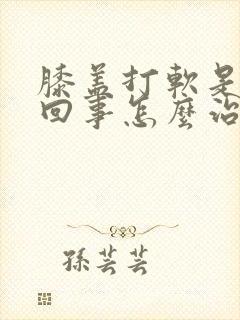 膝盖打軟是
回事怎麼治
孫芸芸